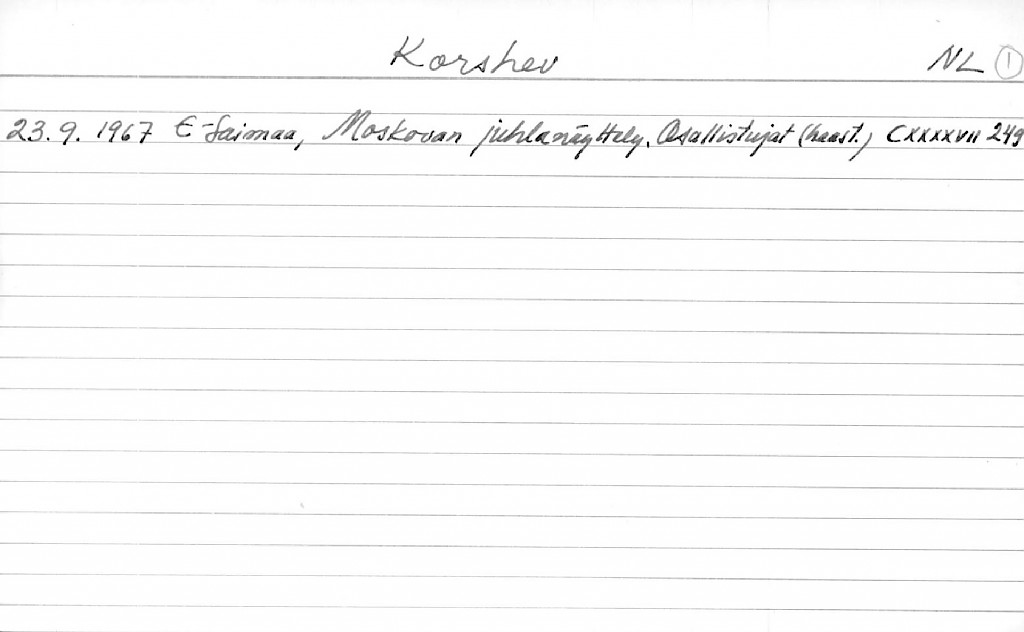 Korshev NL 1
23.9. 1967 E-Saimaa, Moskovan juhlanäyttely. Osallistujat (haast.) CXXXXVII 249